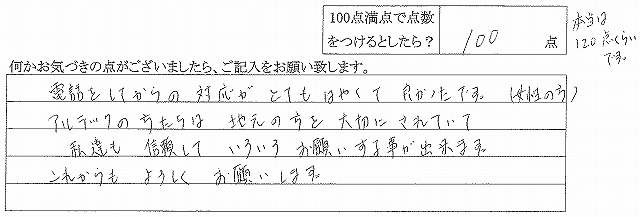 100点満点で点数
をつけるとしたら？ 100 点
本当は
120点くらい
です。
何かお気づきの点がございましたら、ご記入をお願い致します。
電話をしてからの対応がとてもはやくて良かったです。(女性の方)
アルテックの方たちは 地元の方を大切にされていて
私達も 信頼して いろいろ お願いする事が出来ます。
これからも よろしく お願いします。